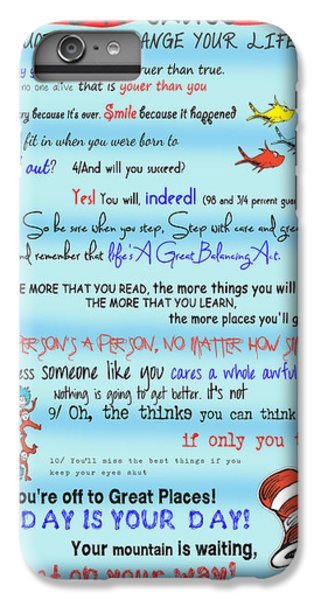 ANGE YOUR LIFE
y y uer than true.
no one alive that is youer than you
ry because it's over. Smile because it happened
fit in when you were born to
out? 4/And will you succeed?
Yes! You will, indeed! (98 and 3/4 percent gua
So be sure when you step, Step with care and gre
nd remember that life's A Great Balancing Act.
E MORE THAT YOU READ, the more things you will
THE MORE THAT YOU LEARN,
the more places you'll g
ERSON'S A PERSON, NO MATTER HOW S
ess someone like you cares a whole awfu
Nothing is going to get better. It's not
9/ Oh, the thinks you can think
if only you t
10/ You'll miss the best things if you
keep your eyes shut
ou're off to Great Places!
DAY IS YOUR DAY!
Your mountain is waiting,
t on your way!